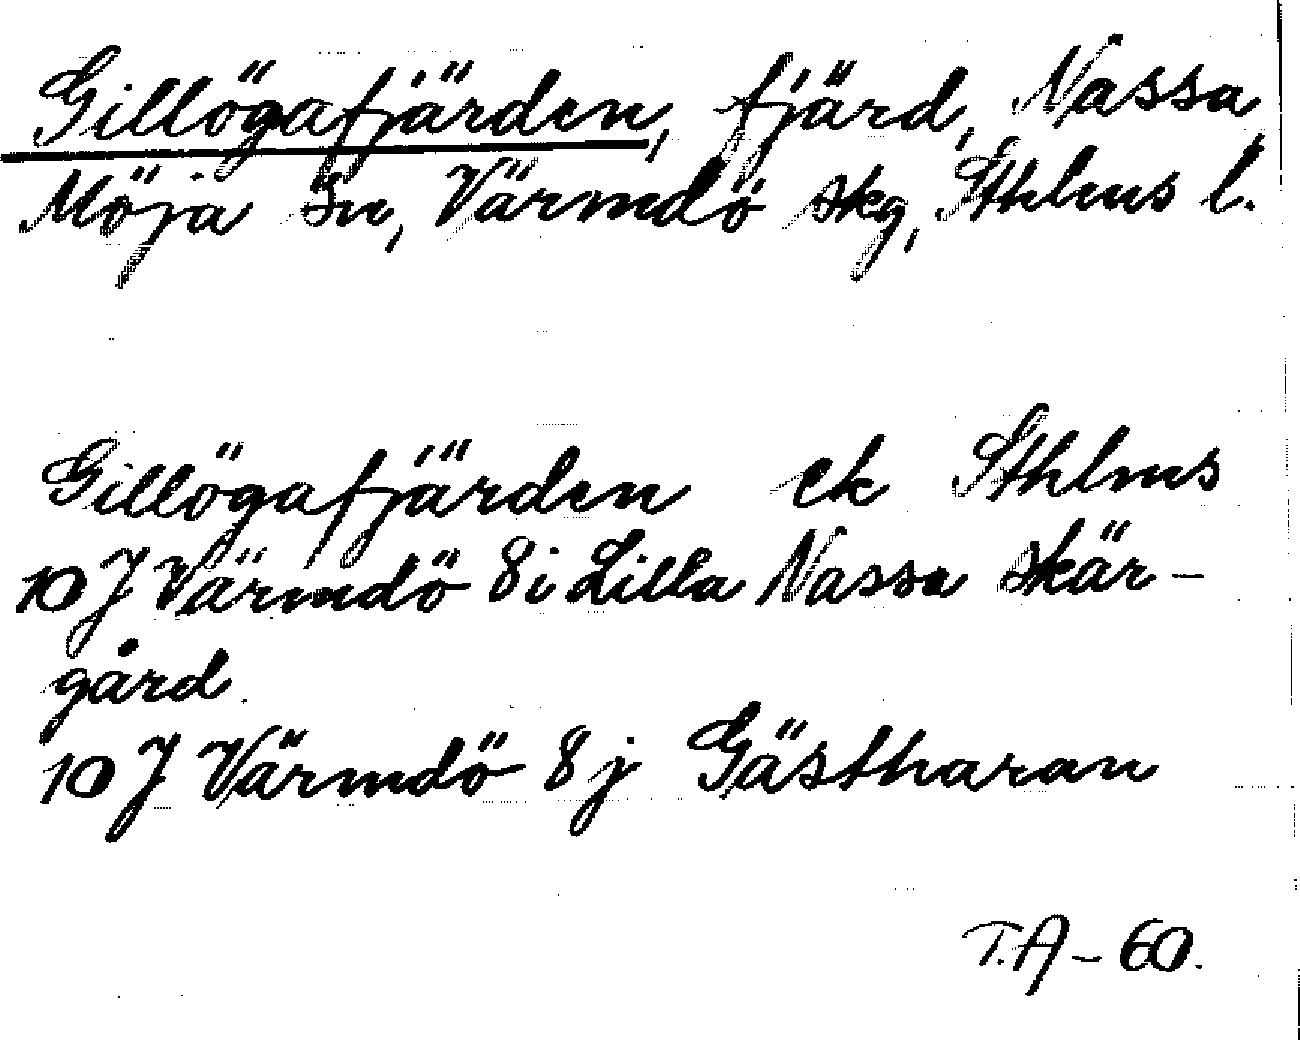 Gillögafjärden, fjärd, Nassa,
Möja sn, Värmdö skg, Sthlms l.
Gillögafjärden ek Sthlms
10 J Värmdö 8 i Lilla Nassa skär-
gård.
10 J Värmdö 8 j Gästharan
T.A - 60.